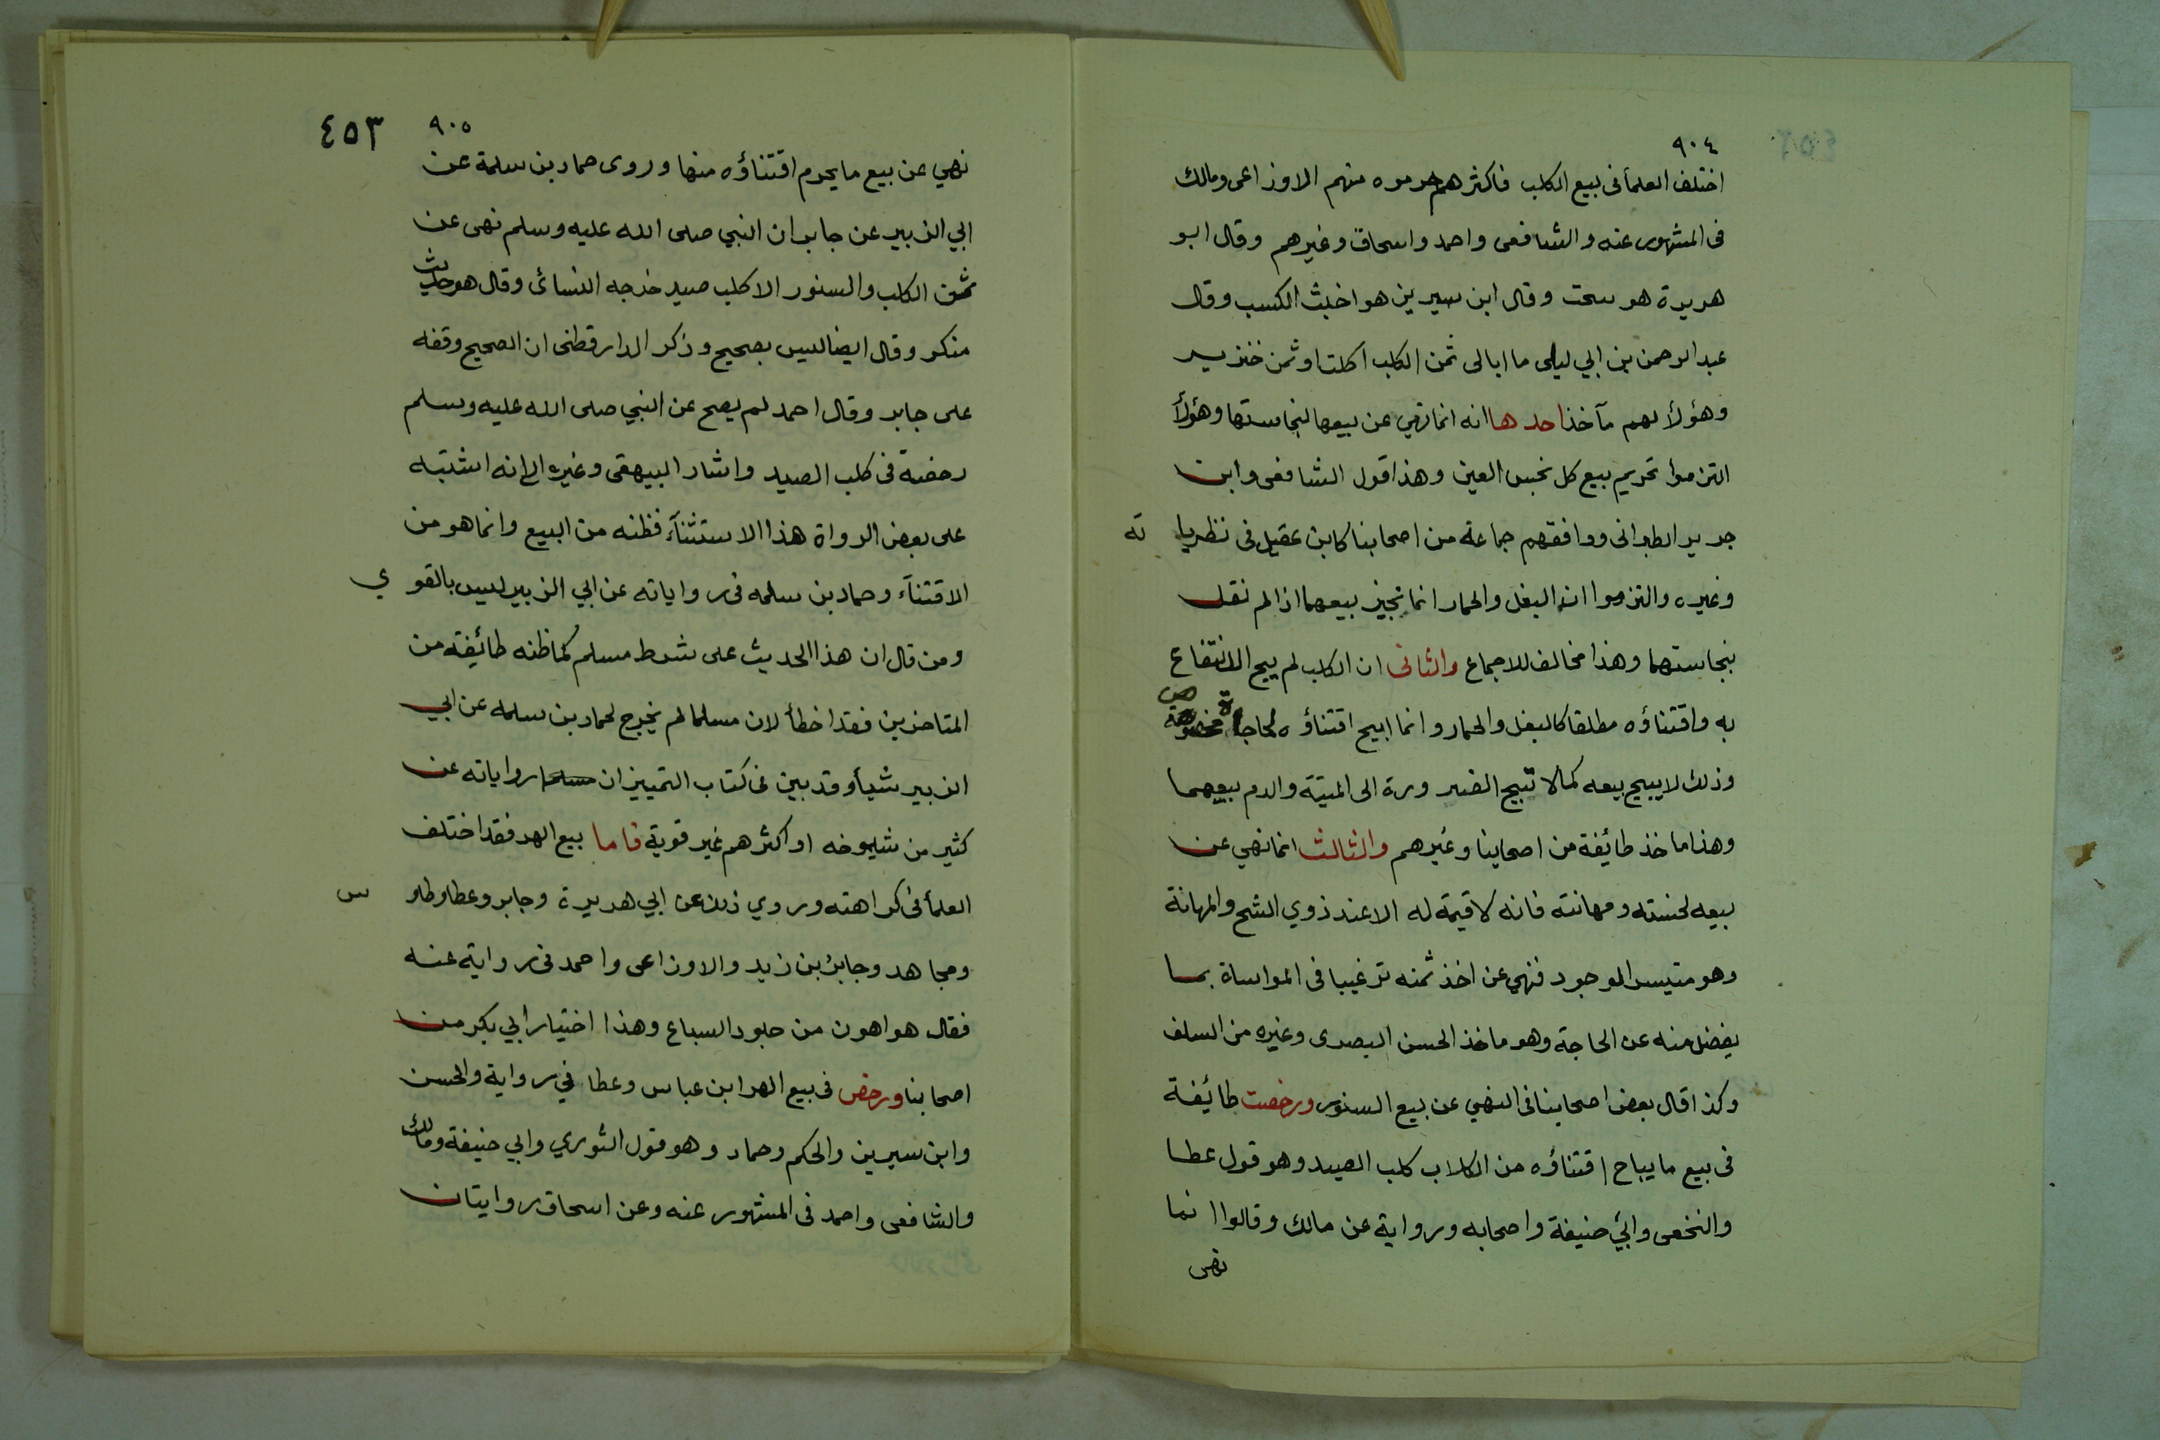 ٩٠٤
اختلف العلمأ فى بيع الكلب فاكثرهم حرموه منهم الاوزاعى ومالك
فى المشهور عنه والشافعى واحمد واسحاق وغيرهم وقال ابو
هريرة هو سحت وقال ابن سيرين هو اخبث الكسب وقال
عبد الرحمن بن ابي ليلى ما ابالى ثمن الكلب اكلت او ثمن خنزير
وهؤلأ لهم مآخذ احدها انه انما نهي عن بيعها لنجاستها وهؤلأ
التزموا تحريم بيع كل نجس العين وهذا قول الشافعى وابن
جرير الطبرانى ووافقهم جماعة من اصحابنا كابن عقيل فى نظرياته
وغيره والتزموا ان البغل والحمار انما نجيز بيعهما اذا لم نقل
بنجاستهما وهذا مخالف للاجماع والثانى ان الكلب لم يبح الانتفاع
به واقتناؤه مطلقا كالبغل والحمار وانما ابيح اقتناؤه لحاجة مخصوصة
وذلك لا يبيح بيعه كما لا تبيح الضرورة الى الميتة والدم بيعهما
وهذا ماخذ طائفة من اصحابنا وغيرهم والثالث انما نهي عن
بيعه لخسته ومهانته فانه لا قيمة له الا عند ذوي الشح والمهانة
وهو متيسر الوجود فنهي عن اخذ ثمنه ترغيبا فى المواساة بما
يفضل منه عن الحاجة وهو ماخذ الحسن البصرى وغيره من السلف
وكذا قال بعض اصحابنا فى النهي عن بيع السنور ورخصت طائفة
فى بيع ما يباح اقتناؤه من الكلاب كلب الصيد وهو قول عطا
والنخعى وابي حنيفة واصحابه ورواية عن مالك وقالوا انما
نهى
٩٠٥
٤٥٣
نهي عن بيع ما يحرم اقتناؤه منها وروى حماد بن سلمة عن
ابي الزبير عن جابر ان النبي صلى الله عليه وسلم نهى عن
ثمن الكلب والسنور الا كلب صيد خرجه النسائى وقال هو حديث
منكر وقال ايضا ليس بصحيح وذكر الدارقطنى ان الصحيح وقفه
على جابر وقال احمد لم يصح عن النبي صلى الله عليه وسلم
رخصة فى كلب الصيد واشار البيهقى وغيره الى انه اشتبه
على بعض الرواة هذا الاستثنآء فظنه من البيع وانما هو من
الاقتنآء وحماد بن سلمه فى رواياته عن ابي الزبير ليس بالقوي
ومن قال ان هذا الحديث على شرط مسلم كما ظنه طائفة من
المتاخرين فقد اخطأ لان مسلما لم يخرج لحماد بن سلمه عن ابي
الزبير شيأ وقد بين فى كتاب التمييز ان رواياته عن
كثير من شيوخه او اكثرهم غير قوية فاما بيع الهر فقد اختلف
العلمأ فى كراهته وروي ذلك عن ابي هريرة وجابر وعطا وطاوس
ومجاهد وجابر بن زيد والاوزاعى واحمد فى رواية عنه
فقال هو اهون من جلود السباع وهذا اختيار ابي بكر من
اصحابنا ورخص فى بيع الهر ابن عباس وعطا في رواية والحسن
وابن سيرين والحكم وحماد وهو قول الثوري وابي حنيفة ومالك
والشافعى واحمد فى المشهور عنه وعن اسحاق روايتان